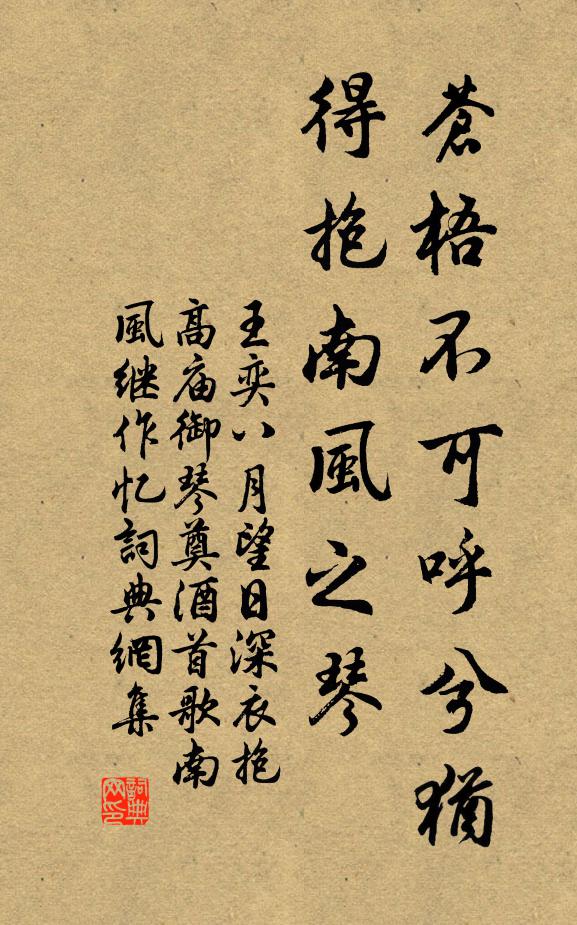 蒼梧不可呼兮猶
得抱南風之琴
王奕八月望日深衣抱
高庙御琴奠酒首歌南
風継作忆詞典網集
詞典网印